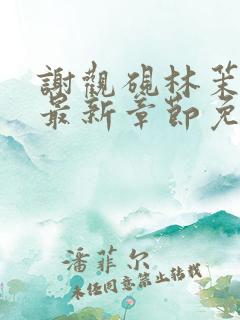 謝觀硯林茉
最新章節免
潘菲尔
未经同意禁止转载